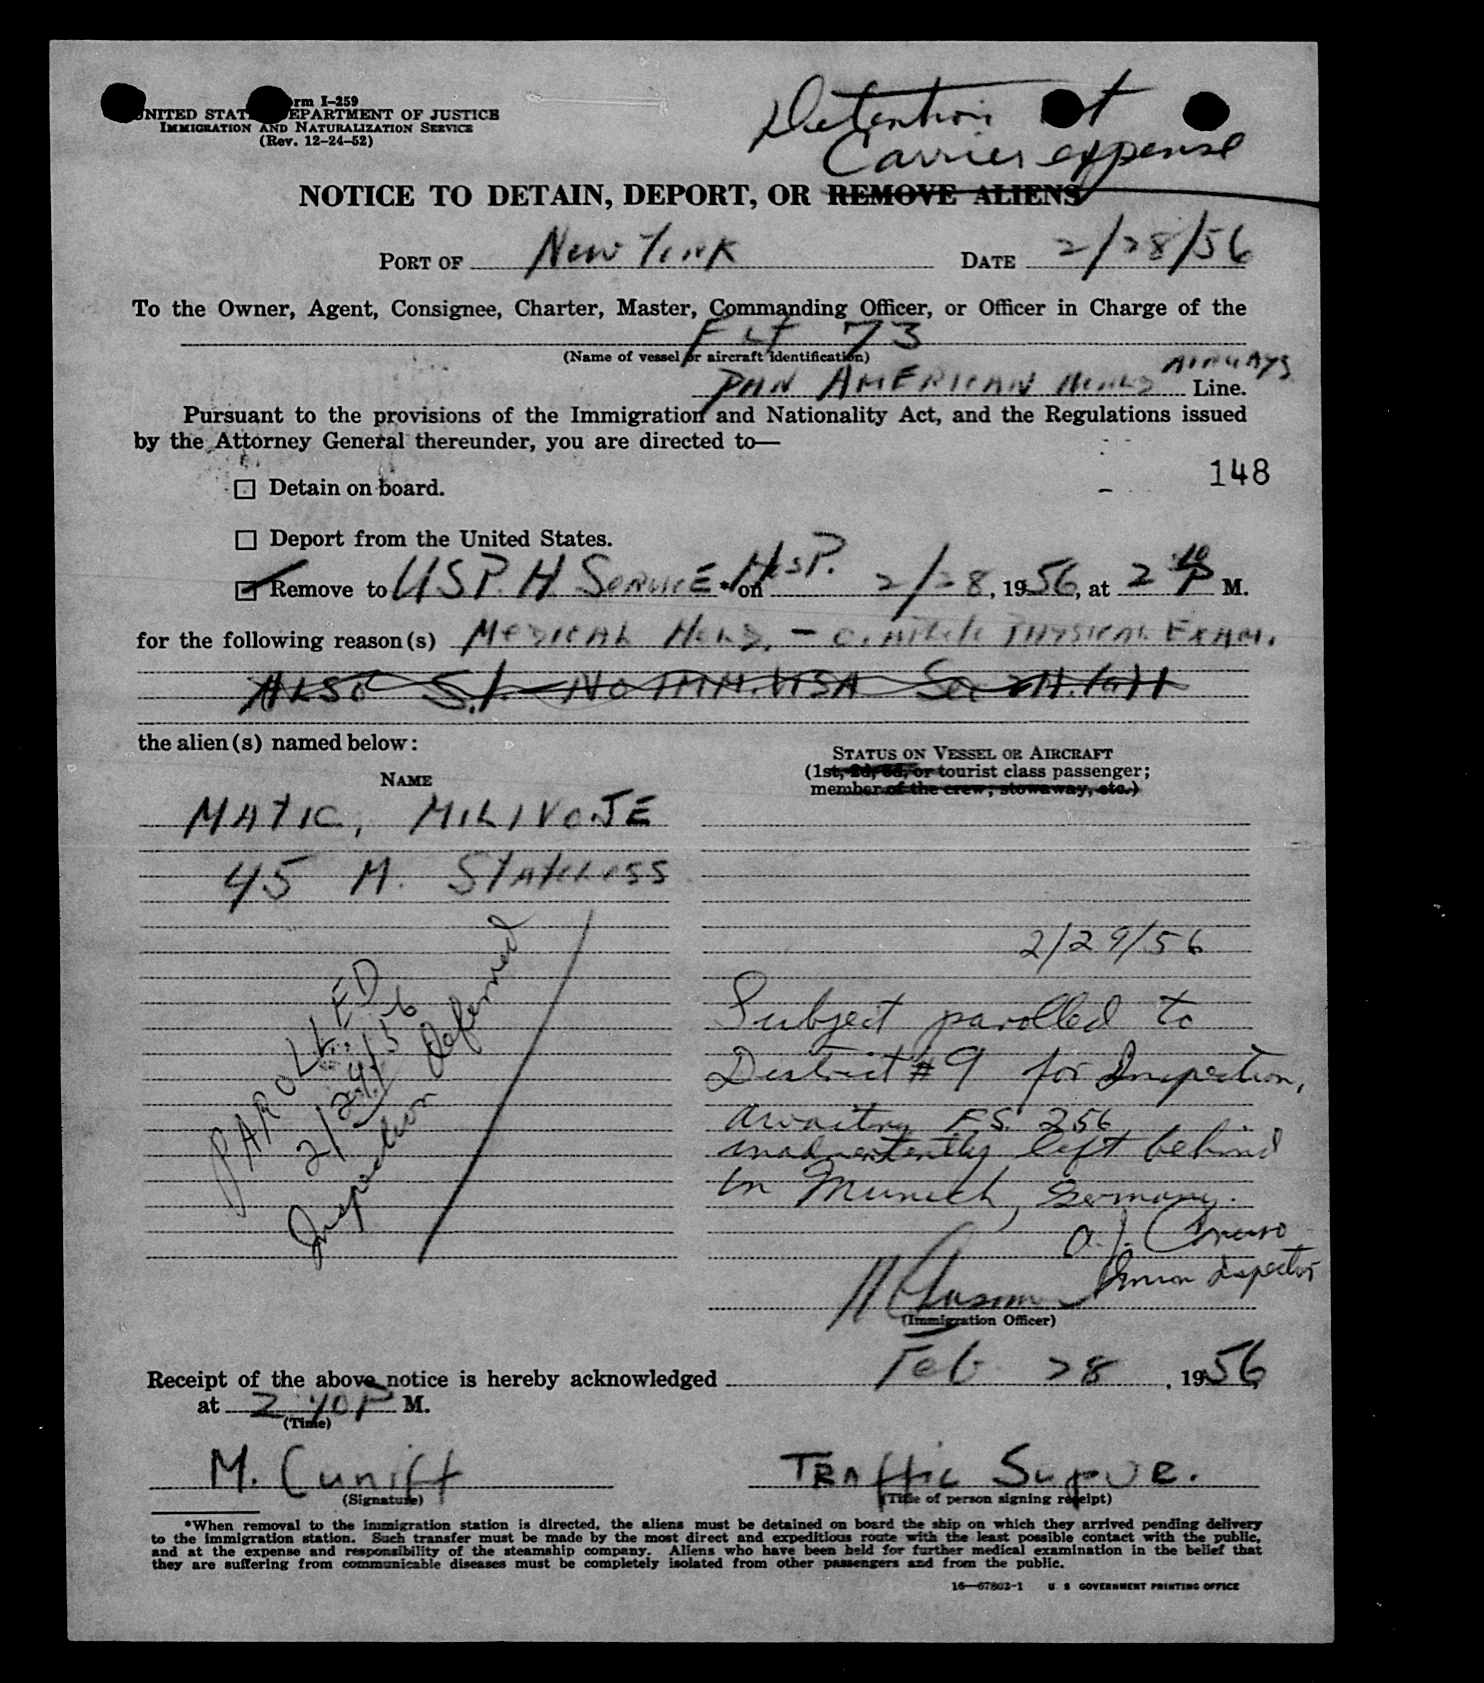 Form I-259
UNITED STATES DEPARTMENT OF JUSTICE
IMMIGRATION AND NATURALIZATION SERVICE
(Rev. 12-24-52)
Detention at
Carrier expense
NOTICE TO DETAIN, DEPORT, OR REMOVE ALIENS
PORT OF New York DATE 2/28/56
To the Owner, Agent, Consignee, Charter, Master, Commanding Officer, or Officer in Charge of the
FLT 73
(Name of vessel or aircraft identification)
PAN AMERICAN WORLD AIRWAYS Line.
Pursuant to the provisions of the Immigration and Nationality Act, and the Regulations issued
by the Attorney General thereunder, you are directed to—
148
Detain on board.
Deport from the United States.
Remove to USP.H SERVICE HOSP. *on 2/28, 1956, at 2 40 P M.
for the following reason(s) MEDICAL HOLD. - COMPLETE PHYSICAL EXAM.
ALSO S.I. - NO IMM. VISA Sec
the alien(s) named below:
STATUS ON VESSEL OR AIRCRAFT
(1st, 2d, 3d, or tourist class passenger;
member of the crew; stowaway, etc.)
NAME
MATIC, MILIVOJE
45 M. STATELESS
PAROLLED
2/29/56
Inspection Deferred
2/29/56
Subject parolled to
District #9 for Inspection,
awaiting F.S. 256
inadvertently left behind
in Munich, Germany.
A. J. Caruso
Immn Inspector
(Immigration Officer)
Receipt of the above notice is hereby acknowledged Feb 28, 1956
at 2 40 P M.
(Time)
M. Cuniff TRAffic SupvR.
(Signature) (Title of person signing receipt)
*When removal to the immigration station is directed, the aliens must be detained on board the ship on which they arrived pending delivery
to the immigration station. Such transfer must be made by the most direct and expeditious route with the least possible contact with the public,
and at the expense and responsibility of the steamship company. Aliens who have been held for further medical examination in the belief that
they are suffering from communicable diseases must be completely isolated from other passengers and from the public.
16—67802-1 U. S. GOVERNMENT PRINTING OFFICE